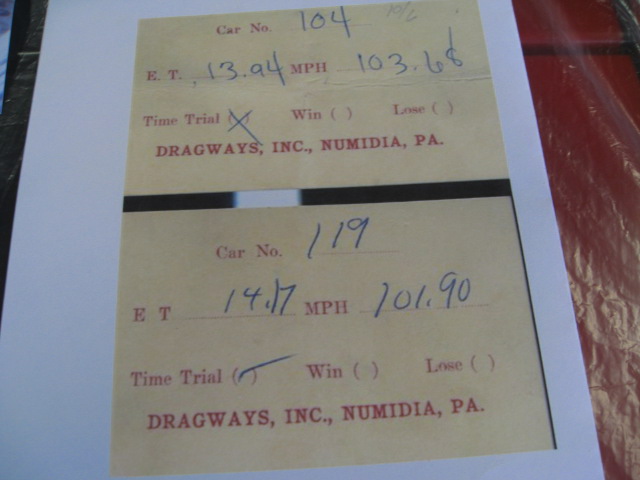 Car No. 104
E. T. 13.94 MPH 103.68
Time Trial (X) Win ( ) Lose ( )
DRAGWAYS, INC., NUMIDIA, PA.
Car No. 119
E T 14.17 MPH 101.90
Time Trial (✓) Win ( ) Lose ( )
DRAGWAYS, INC., NUMIDIA, PA.